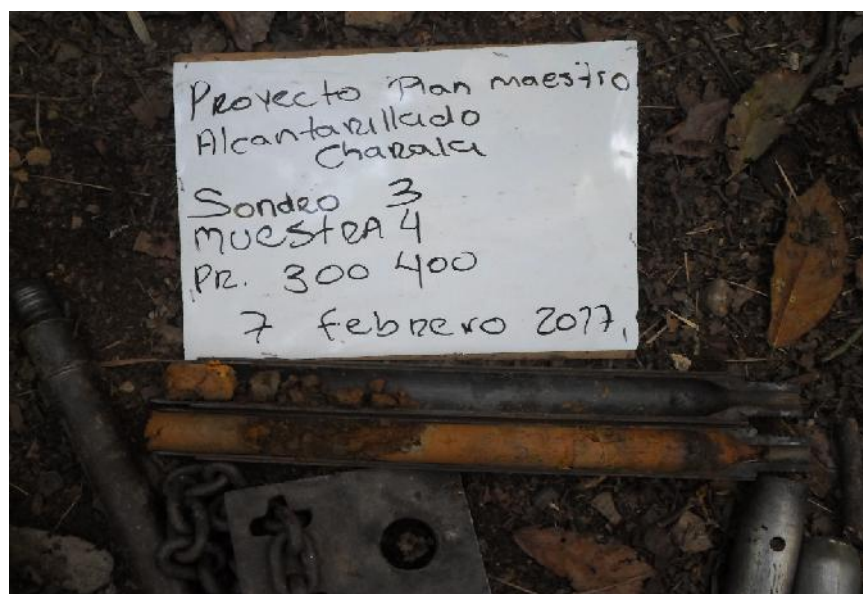 Proyecto Plan maestro
Alcantarillado
Charala
Sondeo 3
MUESTRA 4
PR. 300 400
7 febrero 2017.